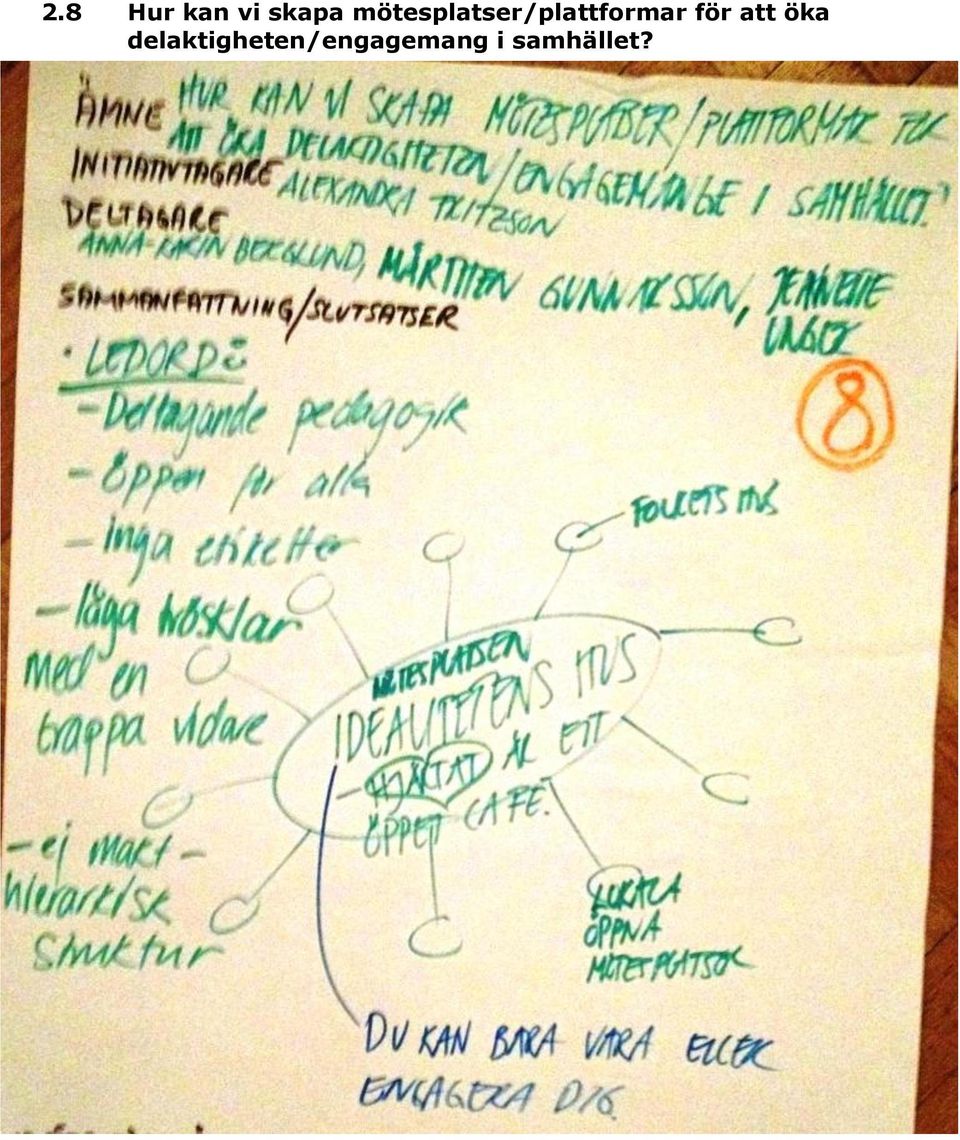 2.8 Hur kan vi skapa mötesplatser/plattformar för att öka
delaktigheten/engagemang i samhället?
ÄMNE HUR KAN VI SKAPA MÖTESPLATSER/PLATTFORMAR FÖR
ATT ÖKA DELAKTIGHETEN/ENGAGEMANGE I SAMHÄLLET?
INITIATIVTAGARE ALEXANDRA FRITZSON
DELTAGARE
ANNA-KARIN BERGLUND, MÅRTHEN GUNNARSSON, JEANNETTE
UNGER
SAMMANFATTNING/SLUTSATSER
• LEDORD:
- Deltagande pedagogik
- Öppen för alla
- Inga etiketter
- låga trösklar
med en
trappa vidare
- ej makt-
hierarkisk
struktur
8
FOLKETS HUS
MÖTESPLATSEN
IDEALITETENS HUS
- HJÄRTAT ÄR ETT
ÖPPET CAFE.
LOKALA
ÖPPNA
MÖTESPLATSER
DU KAN BARA VARA ELLER
ENGAGERA DIG.